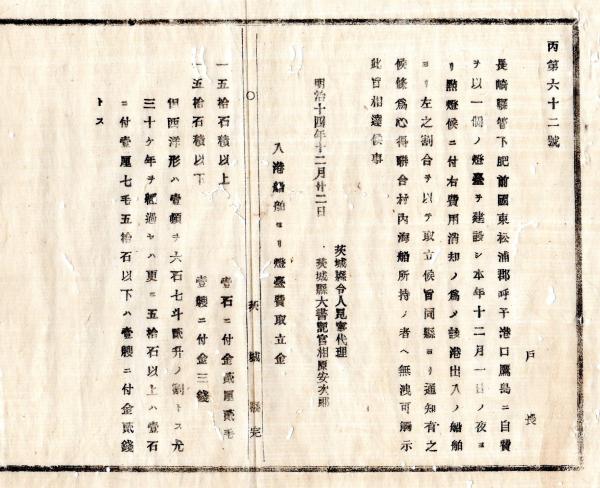 丙第六十二號
戸長
長崎縣管下肥前國東松浦郡呼子港口鷹島ニ自費
ヲ以一個ノ燈臺ヲ建設シ本年十二月一日ノ夜ヨ
リ點燈候ニ付右費用消却ノ爲メ該港出入ノ船舶
ヨリ左之割合ヲ以テ取立候旨同縣ヨリ通知有之
候條爲心得聯合村內海船所持ノ者ヘ無洩可諭示
此旨相達候事
茨城縣令人見寧代理
明治十四年十二月廿二日
茨城縣大書記官相原安次郎
入港船舶ヨリ燈臺費取立金
○
茨城縣
一五拾石積以上 壹石ニ付金貳厘貳毛
五拾石積以下 壹艘ニ付金三錢
但西洋形ハ壹噸ヲ六石七斗貳升ノ割トス尤
三十ケ年ヲ經過セハ更ニ五拾石以上ハ壹石
ニ付壹厘七毛五拾石以下ハ壹艘ニ付金貳錢
トス